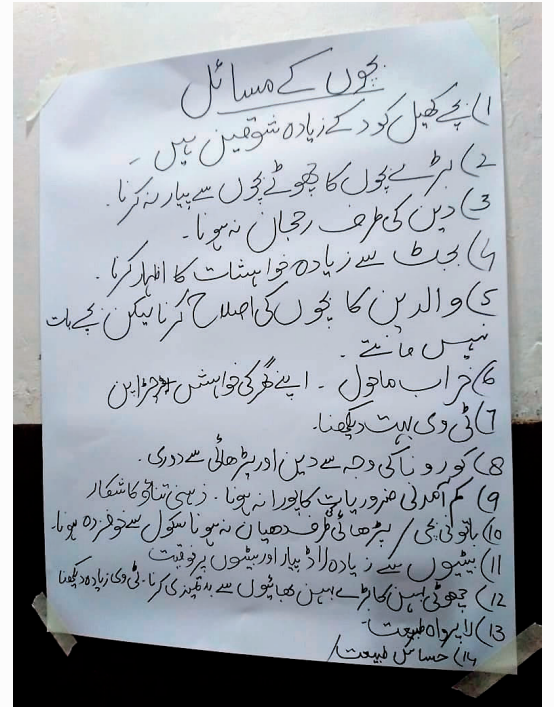 بچوں کے مسائل
1) بچے کھیل کود کے زیادہ شوقین ہیں۔
2) بڑے بچوں کا چھوٹے بچوں سے پیار نہ کرنا۔
3) دین کی طرف رحجان نہ ہونا۔
4) بجٹ سے زیادہ خواہشات کا اظہار کرنا۔
5) والدین کا بچوں کی اصلاح کرنا لیکن بچے بات
نہیں مانتے۔
6) خراب ماحول ۔ اپنے گھر کی خواہش
7) ٹی وی بہت دیکھنا۔
8) کورونا کی وجہ سے دین اور پڑھائی سے دوری۔
9) کم آمدنی ضروریات کا پورا نہ ہونا۔ ذہنی تنائو کا شکار
10) باتونی بچی / پڑھائی طرف دھیان نہ ہونا سکول سے خوفزدہ ہونا۔
11) بیٹیوں سے زیادہ لاڈ پیار اور بیٹوں پر فوقیت
12) چھوٹی بہن کا بڑے بہن بھائیوں سے بدتمیزی کرنا۔ ٹی وی زیادہ دیکھنا
13) لاپرواہ طبیعت۔
14) حساس طبیعت/